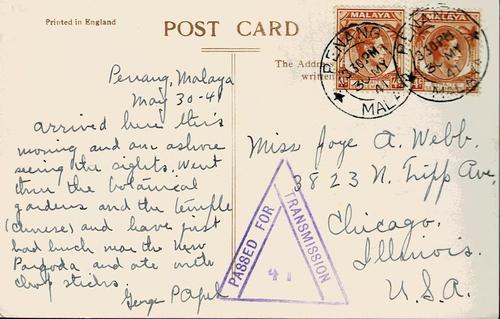 Printed in England
POST CARD
The Address
written
MALAYA
MALAYA
PENANG
30 PM
30 MY
41
MALAYA
PENANG
30 PM
30 MY
41
Penang, Malaya
May 30-41
Arrived here this
morning and am ashore
seeing the sights. Went
thru the botanical
gardens and the temple
(chinese) and have just
had lunch near the new
Pagoda and ate with
chop sticks.
George
Miss Joye A. Webb.
3823 N. Tripp Ave
Chicago,
Illinois.
U.S.A.
PASSED FOR
TRANSMISSION
41